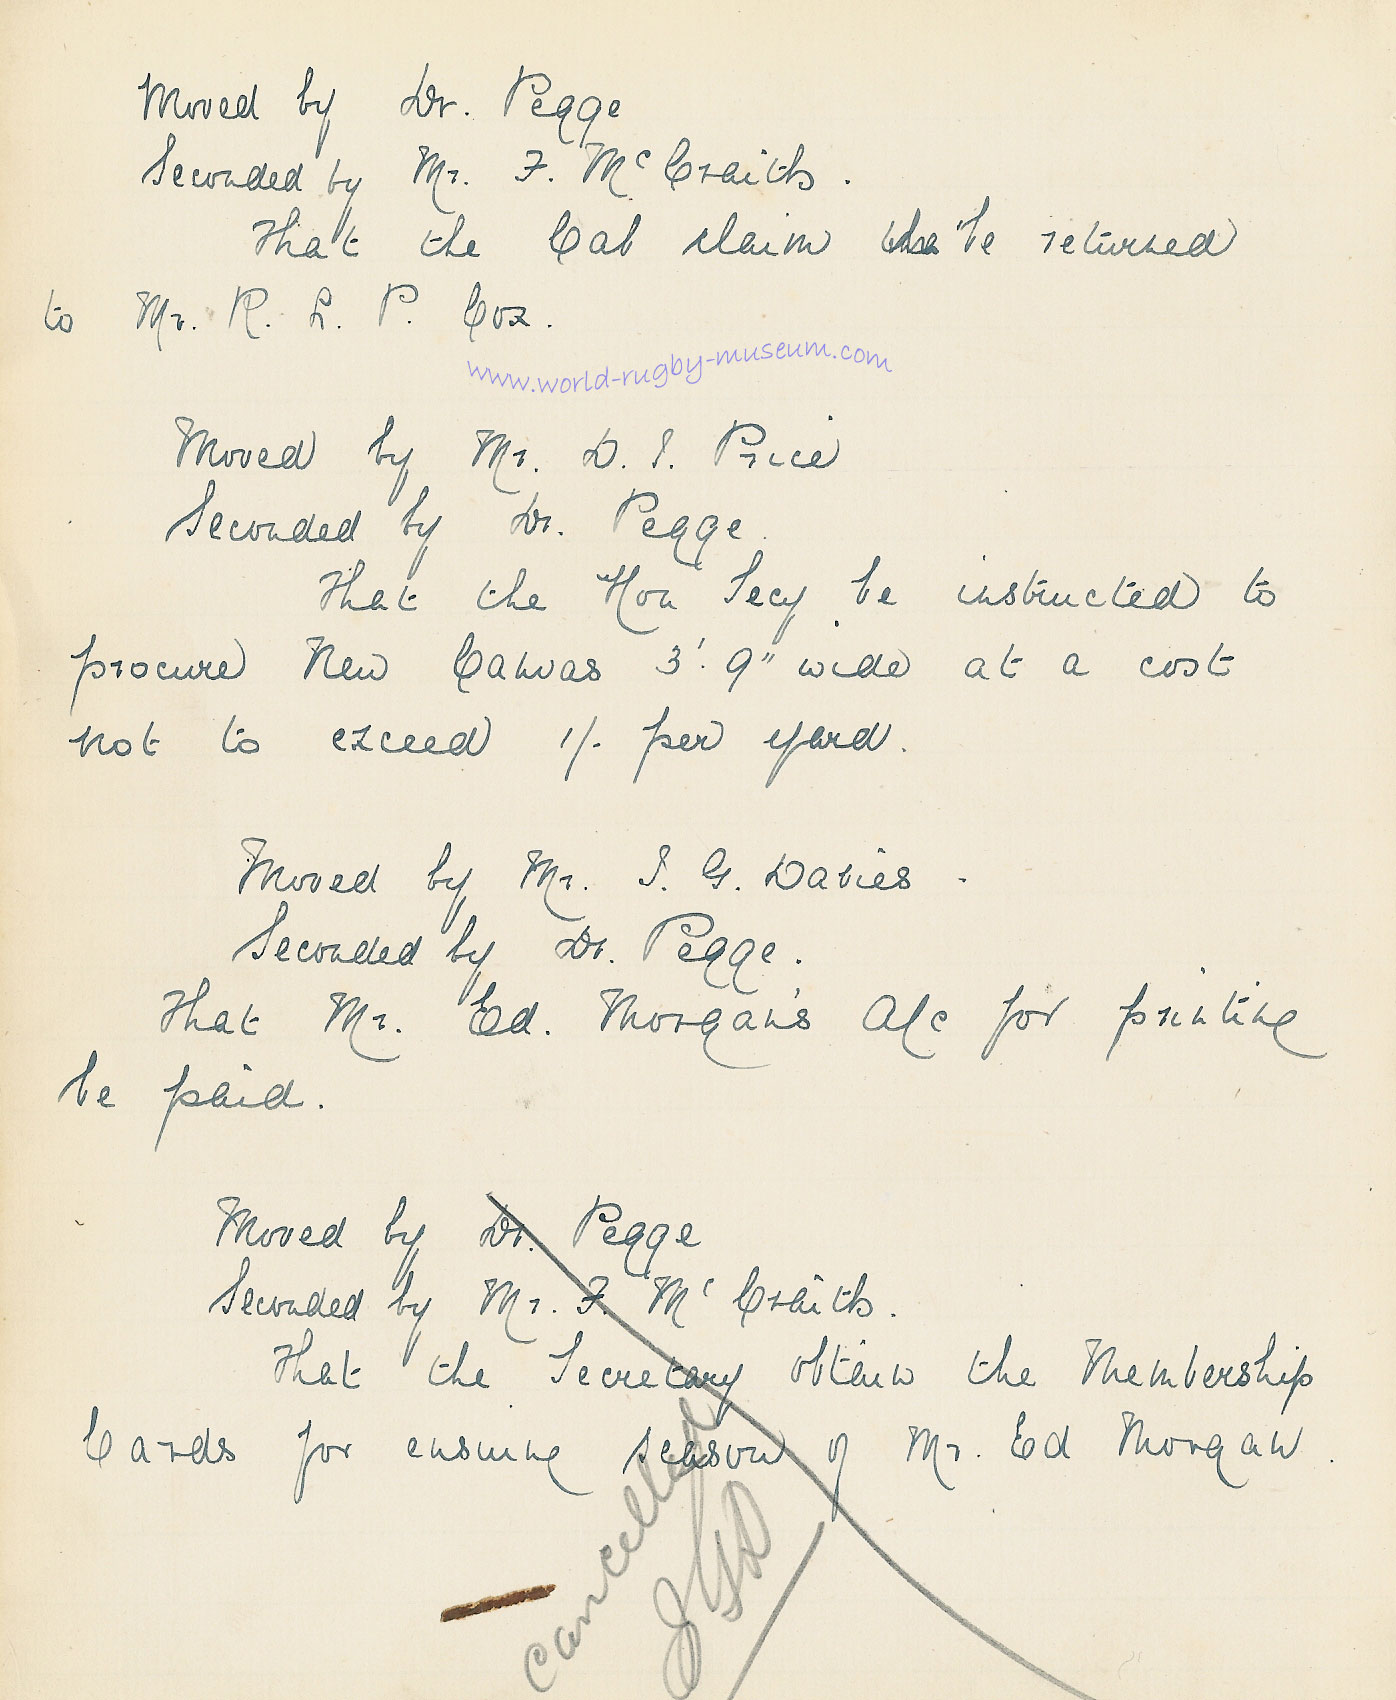 Moved by Dr. Pegge
Seconded by Mr. F. McCraith.
That the Cab claim be returned
to Mr. R. L. P. Cox.
www.world-rugby-museum.com
Moved by Mr. D. I. Price
Seconded by Dr. Pegge
That the Hon Secy be instructed to
procure New Canvas 3'. 9" wide at a cost
not to exceed 1/- per yard.
Moved by Mr. I. G. Davies.
Seconded by Dr. Pegge.
That Mr. Ed. Morgan's A/c for printing
be paid.
Moved by Dr. Pegge
Seconded by Mr. F. McCraith.
That the Secretary obtain the Membership
Cards for ensuing season of Mr. Ed Morgan.
cancelled